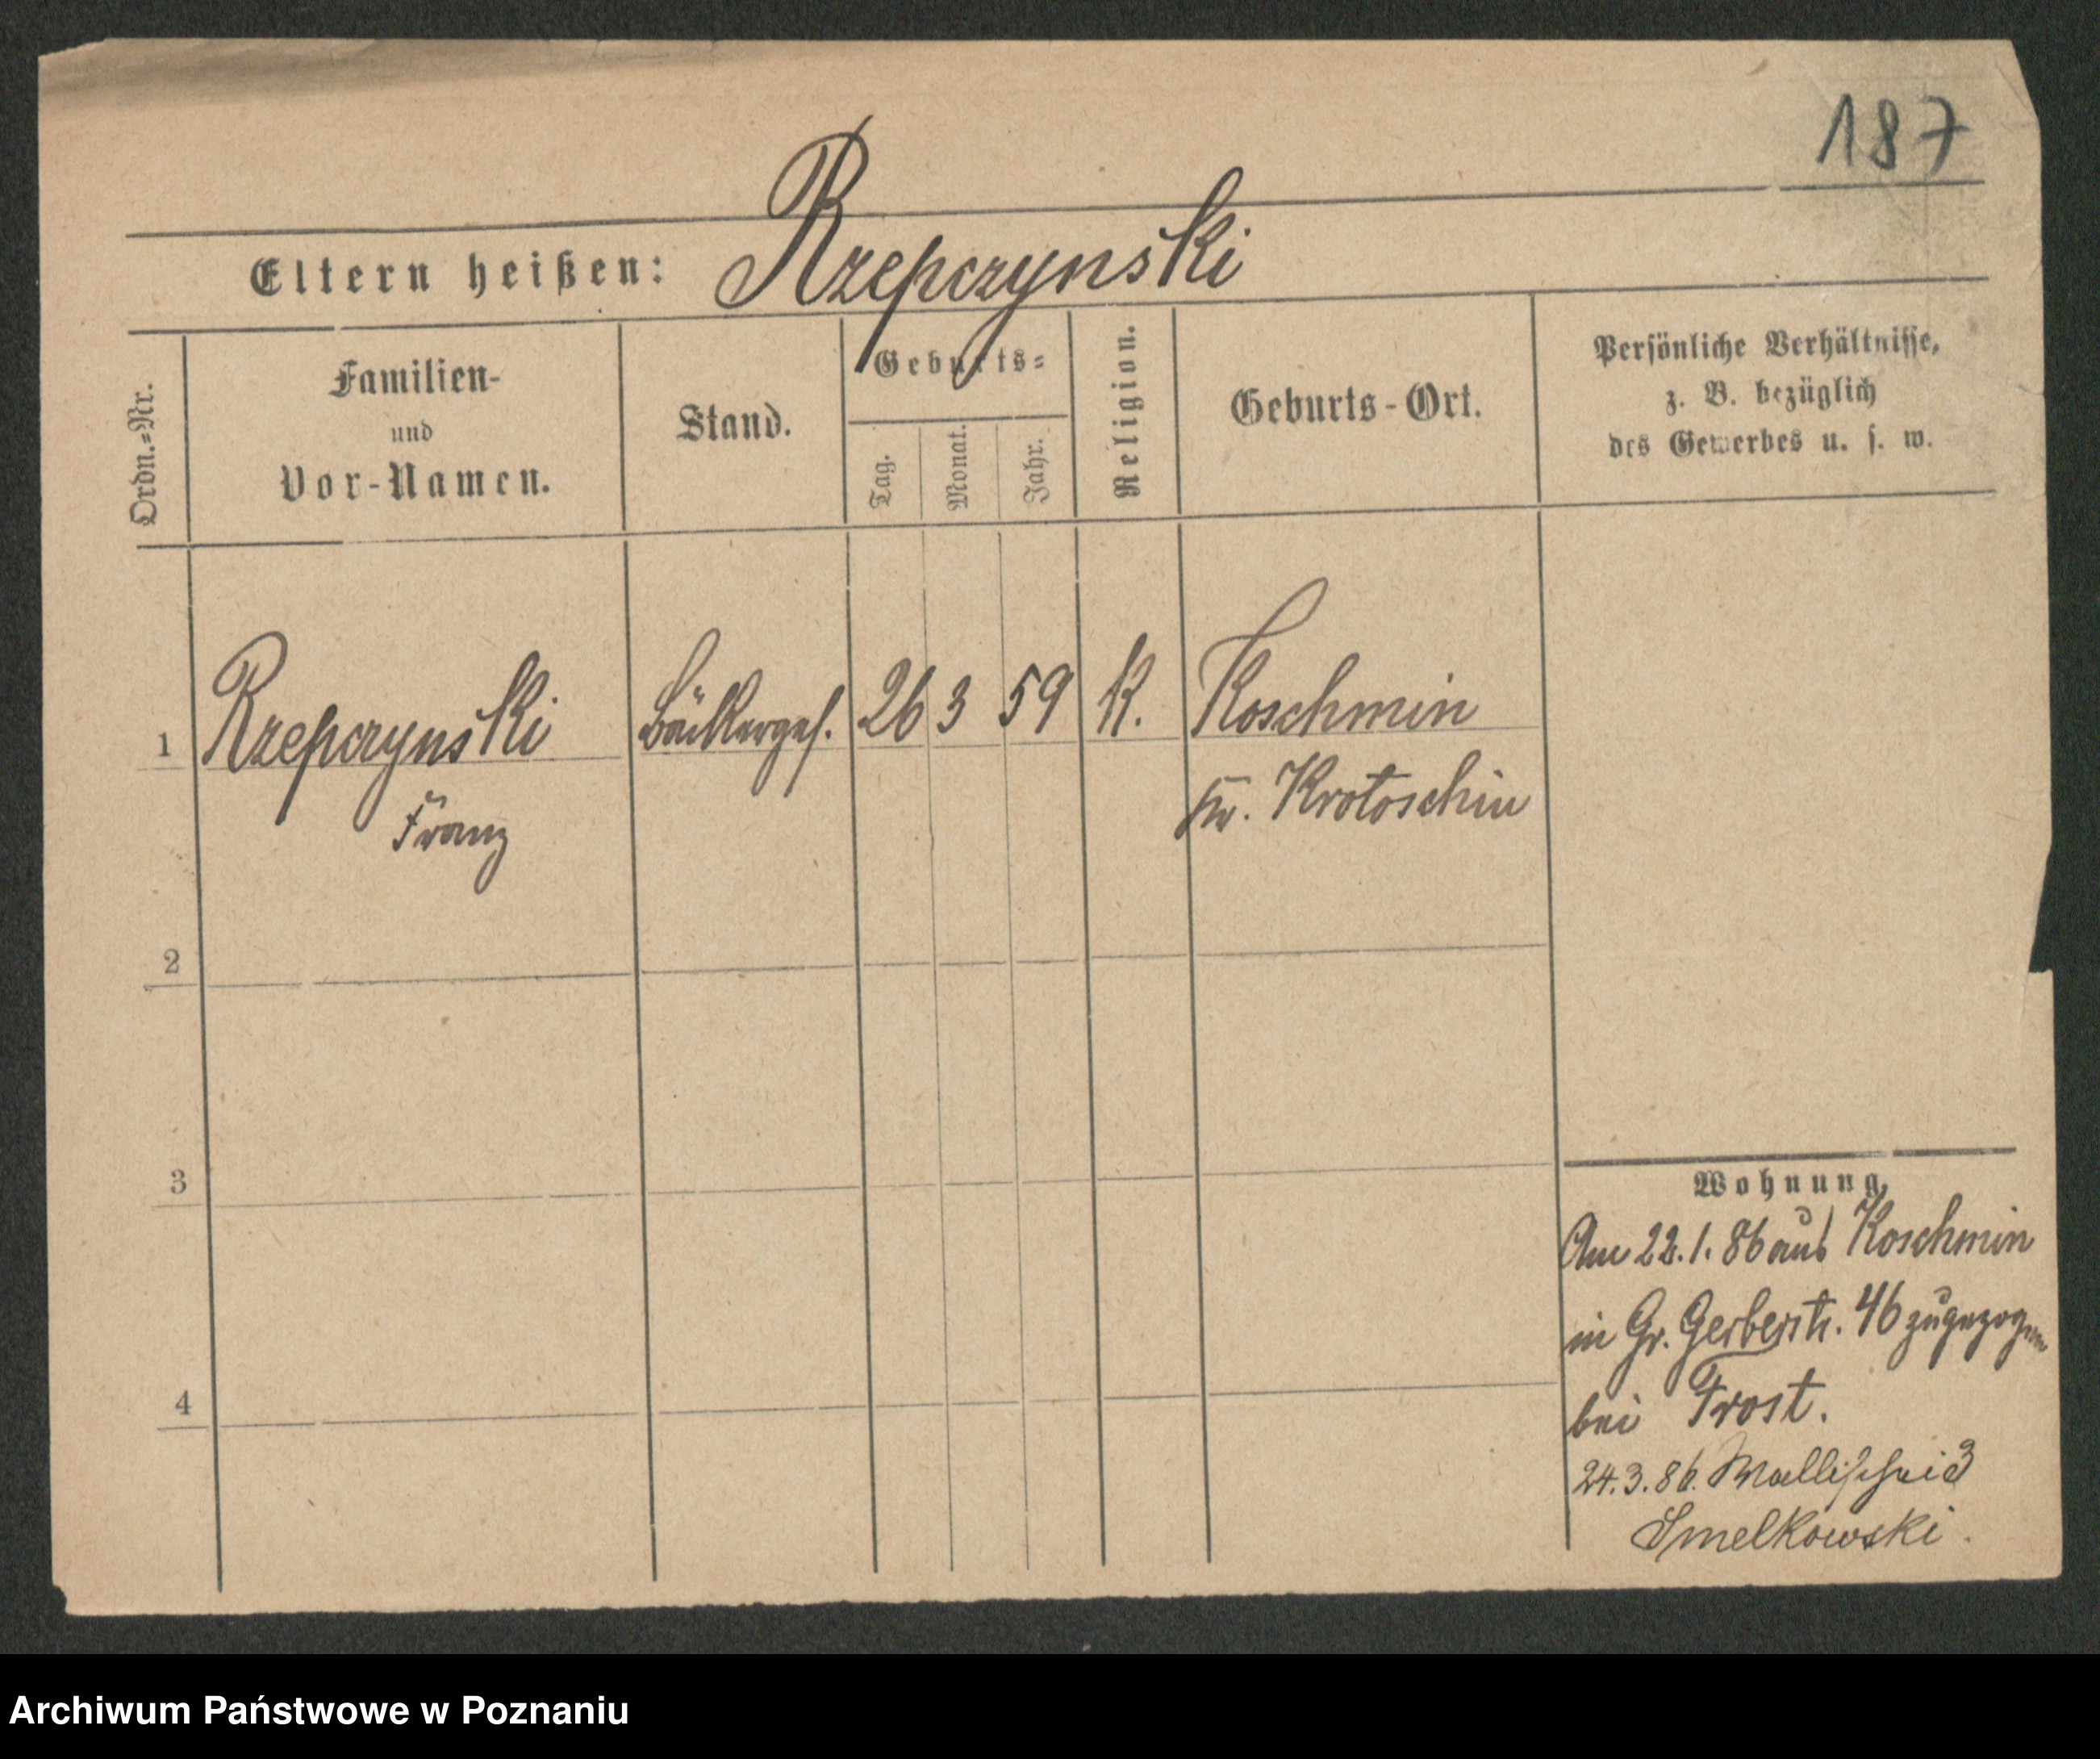 187
Eltern heißen: Rzepczynski
Ordn.-Nr.
Familien-
und
Vor-Namen.
Stand.
Geburts-
Tag.
Monat.
Jahr.
Religion.
Geburts-Ort.
Persönliche Verhältnisse,
z. B. bezüglich
des Gewerbes u. s. w.
1 Rzepczynski Bäckerges. 26 3 59 K. Koschmin
Franz
Kr. Krotoschin
2
3
4
Wohnung.
Am 22.1.86 aus Koschmin
in Gr. Gerberstr. 46 zugezogen
bei Frost.
24.3.86. Wallischei 3
Smelkowski.
Archiwum Państwowe w Poznaniu